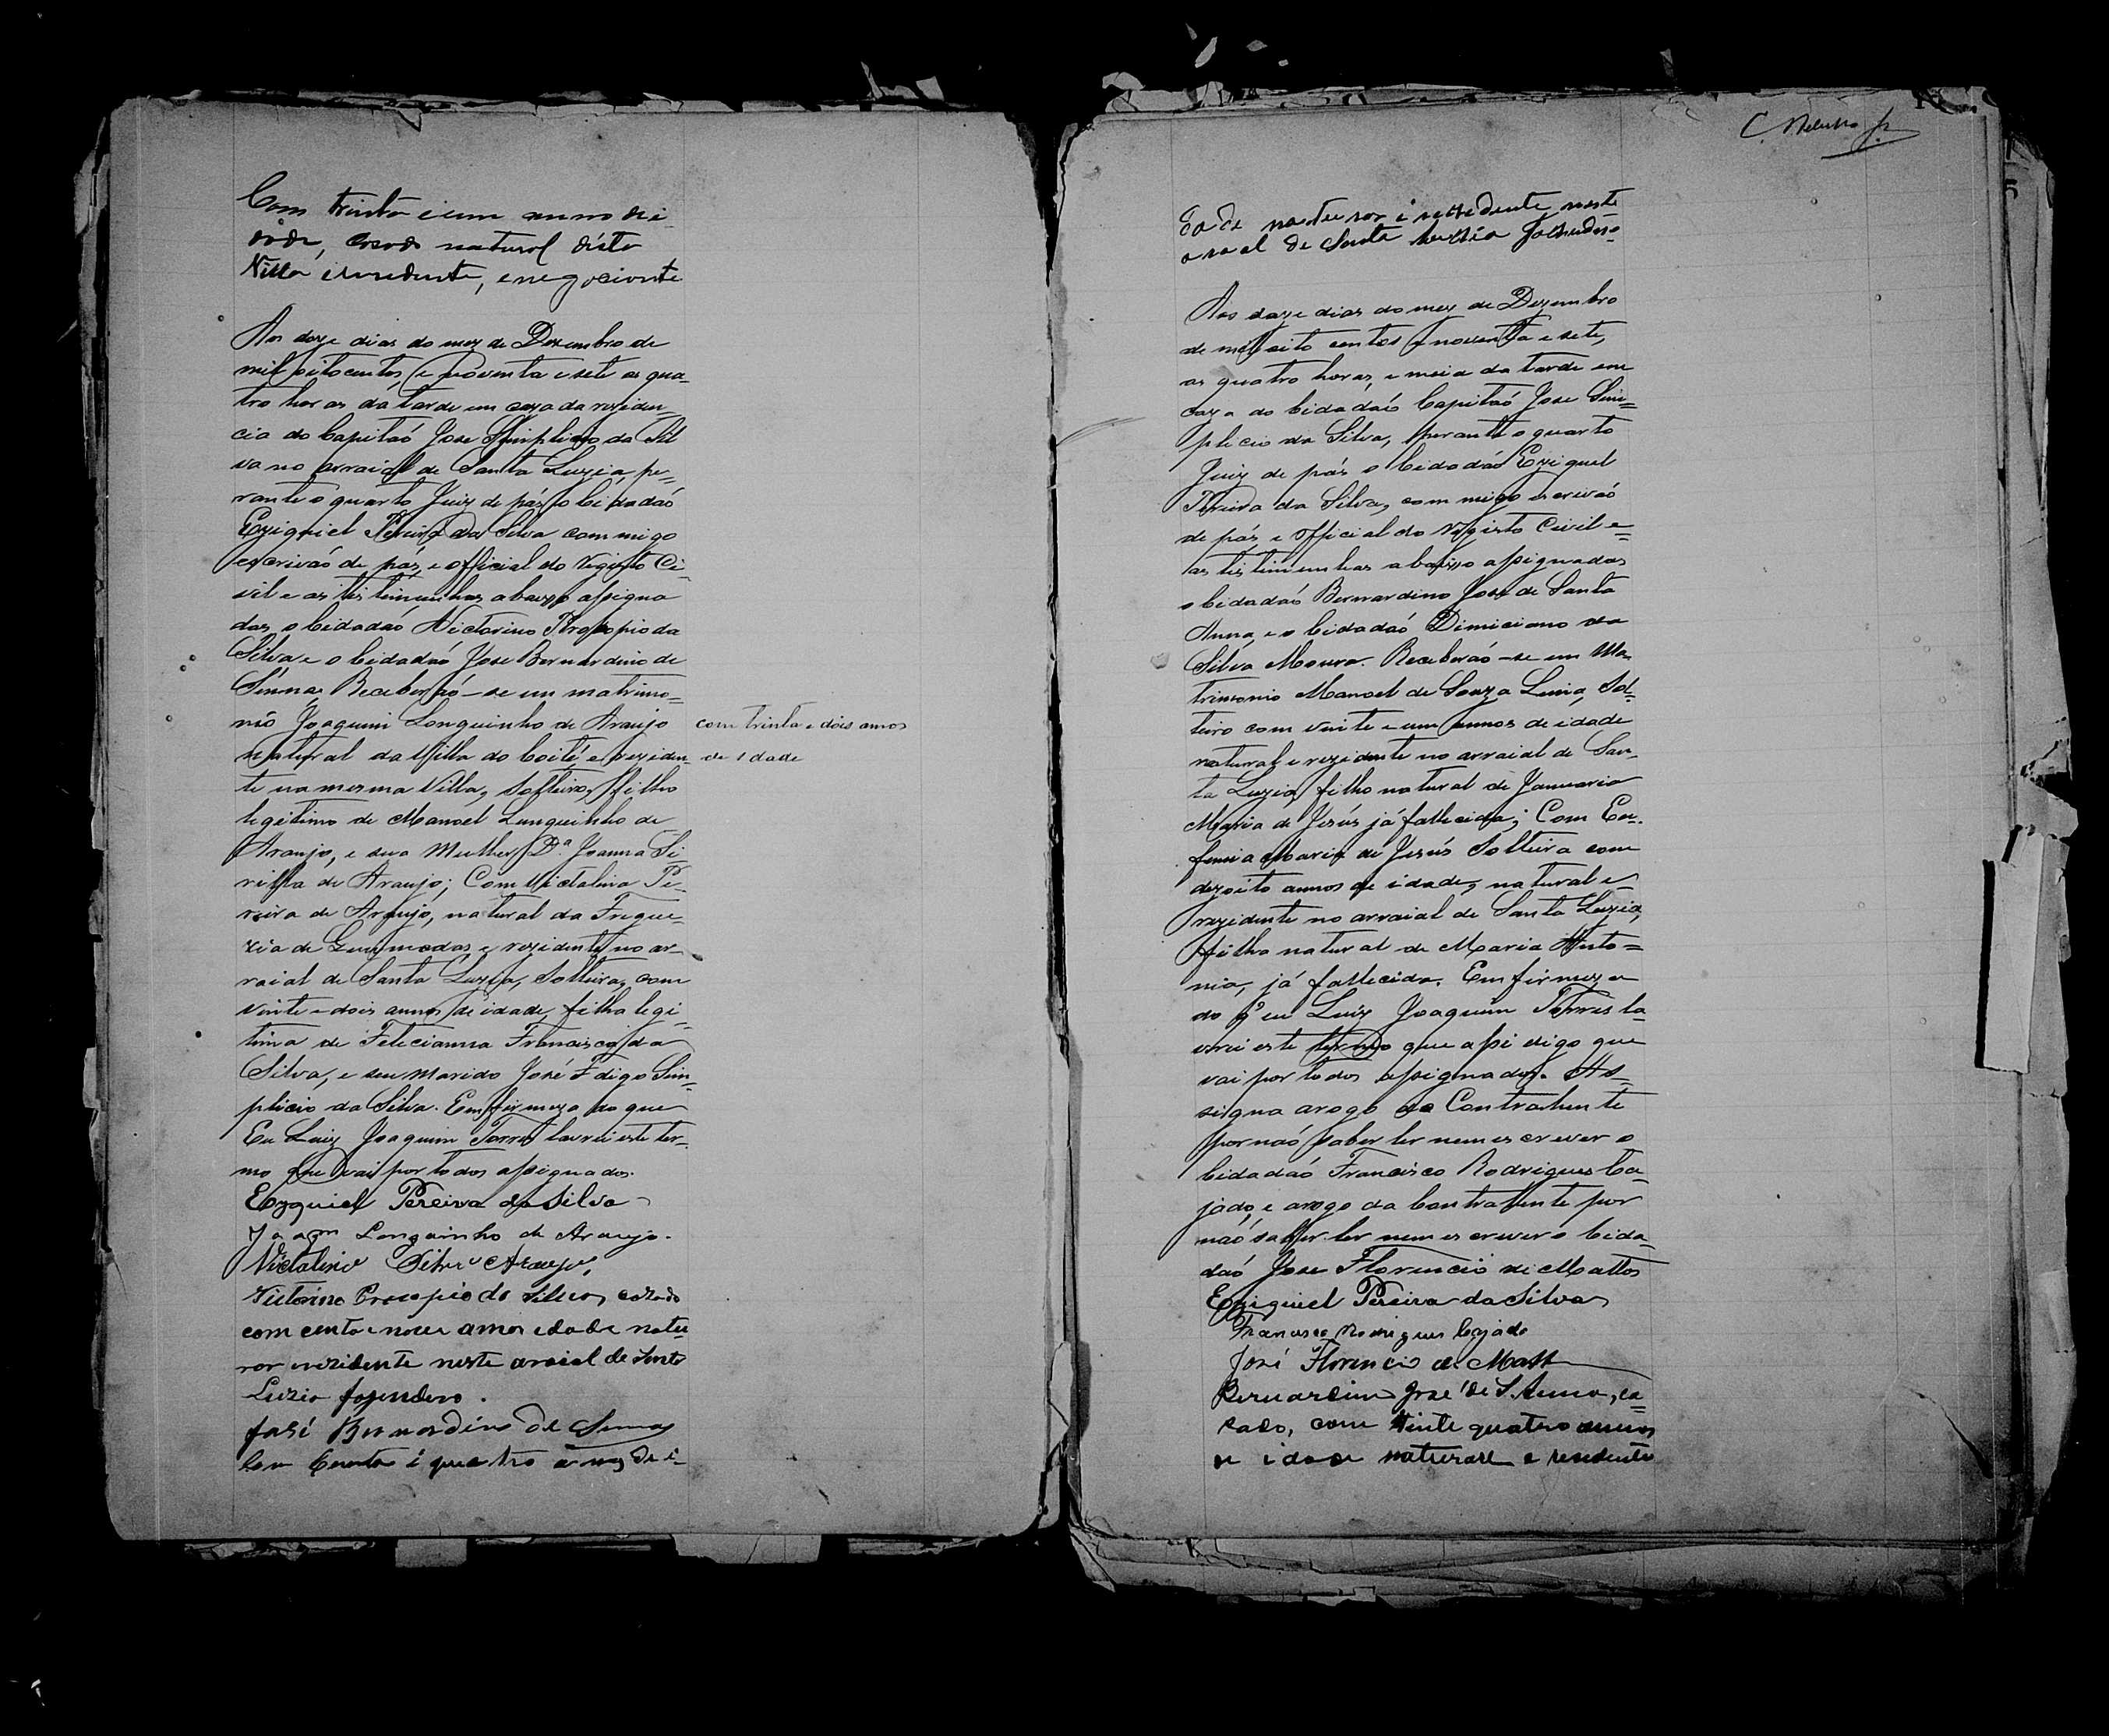 Com trinta e um annos de i-
dade, casado natural desta
Villa e residente, e negociante
Aos doze dias do mez de Dezembro de
mil oitocentos e noventa e sete as qua-
tro horas da tarde em caza da reziden-
cia do Capitaõ Jose Simplicio da Sil
va no arraial de Santa Luzia, pe-
rante o quarto Juiz de pás o Cidadaõ
Eziquiel Pereira da Silva com migo
escrivaõ de pás, e official do registo Ci-
vil e as testimunhas abaixo assigna
das, o Cidadaõ Victorino Procopio da
Silva e o Cidadaõ Jose Bernardino de
Senna. Receberaõ-se em matrimo-
nio Joaquim Longuinho de Araujo
com trinta e dois annos
de idade
natural da Villa do Coité, e reziden-
te na mesma Villa, Solteiro, filho
legitimo de Manoel Lunguinho de
Araujo, e sua Mulher D.ª Joanna
de Araujo; Com Victalina Pe-
reira de Araujo, natural da Fregue-
zia de e rezidente no ar-
raial de Santa Luzia, Solteira, com
vinte e dois annos de idade, filha legi-
tima de Felecianna Francisca da
Silva, e seu marido José F digo Sim-
plicio da Silva. Em firmeza do que
Eu Luiz Joaquim Torres lavrei este ter-
mo que vai por todos assignados.
Ezequiel Pereira da Silva
Joaqm Longuinho de Araujo.
Victalina Araujo.
Victorino Procopio da Silva, cazado
com centa e nove annos idade natu
ror e rezidente neste araial de Santa
Luzia fazendero.
José Bernardino de Senna
Com Coenta i quatro annos de i-
dade naturor i rezedente neste
araal de Santa Luzia
Aos doze dias do mez de Dezembro
de mil oito centos e noventa e sete,
as quatro horas, e meia da tarde em
caza do Cidadaõ Capitaõ Jose Sim=
plicio da Silva, perante o quarto
Juiz de pás o Cidadaõ Eziquel
Pereira da Silva, com migo escrivaõ
de pás, e official do registo Civil e
as testimunhas abaixo assignadas
o Cidadaõ Bernardino José de Santa
Anna, e o Cidadaõ Dimiciano da
Silva Moura. Receberaõ-se em Ma
trimonio Manoel de Souza Lima, Sol-
teiro com vinte e um annos de idade
natural e rezidente no arraial de San-
ta Luzia, filho natural de Januaria
Maria de Jesús já fallecida; Com Eu-
femia Maria de Jesús Solteira com
dezoito annos de idade, natural e
rezidente no arraial de Santa Luzia,
filha natural de Maria Anto=
nia, já fallecida. Em firmeza
do q' eu Luiz Joaquim Torres la-
vrei este termo que assi digo que
vai por todos assignados. As-
signa arogo do Contrahente
por naõ saber ler nem escrever o
Cidadaõ Francisco Rodrigues Ca-
jado, e arogo da Contrahente por
naõ saber ler nem escrever o Cida-
daõ Jose Florencio de Mattos
Eziquiel Pereira da Silva
Francisco Rodrigues Cajado
José Florencio de Matt
Bernardino José de S. Anna, ca=
sado, com vinte quatro annos
de idade naturare e residente